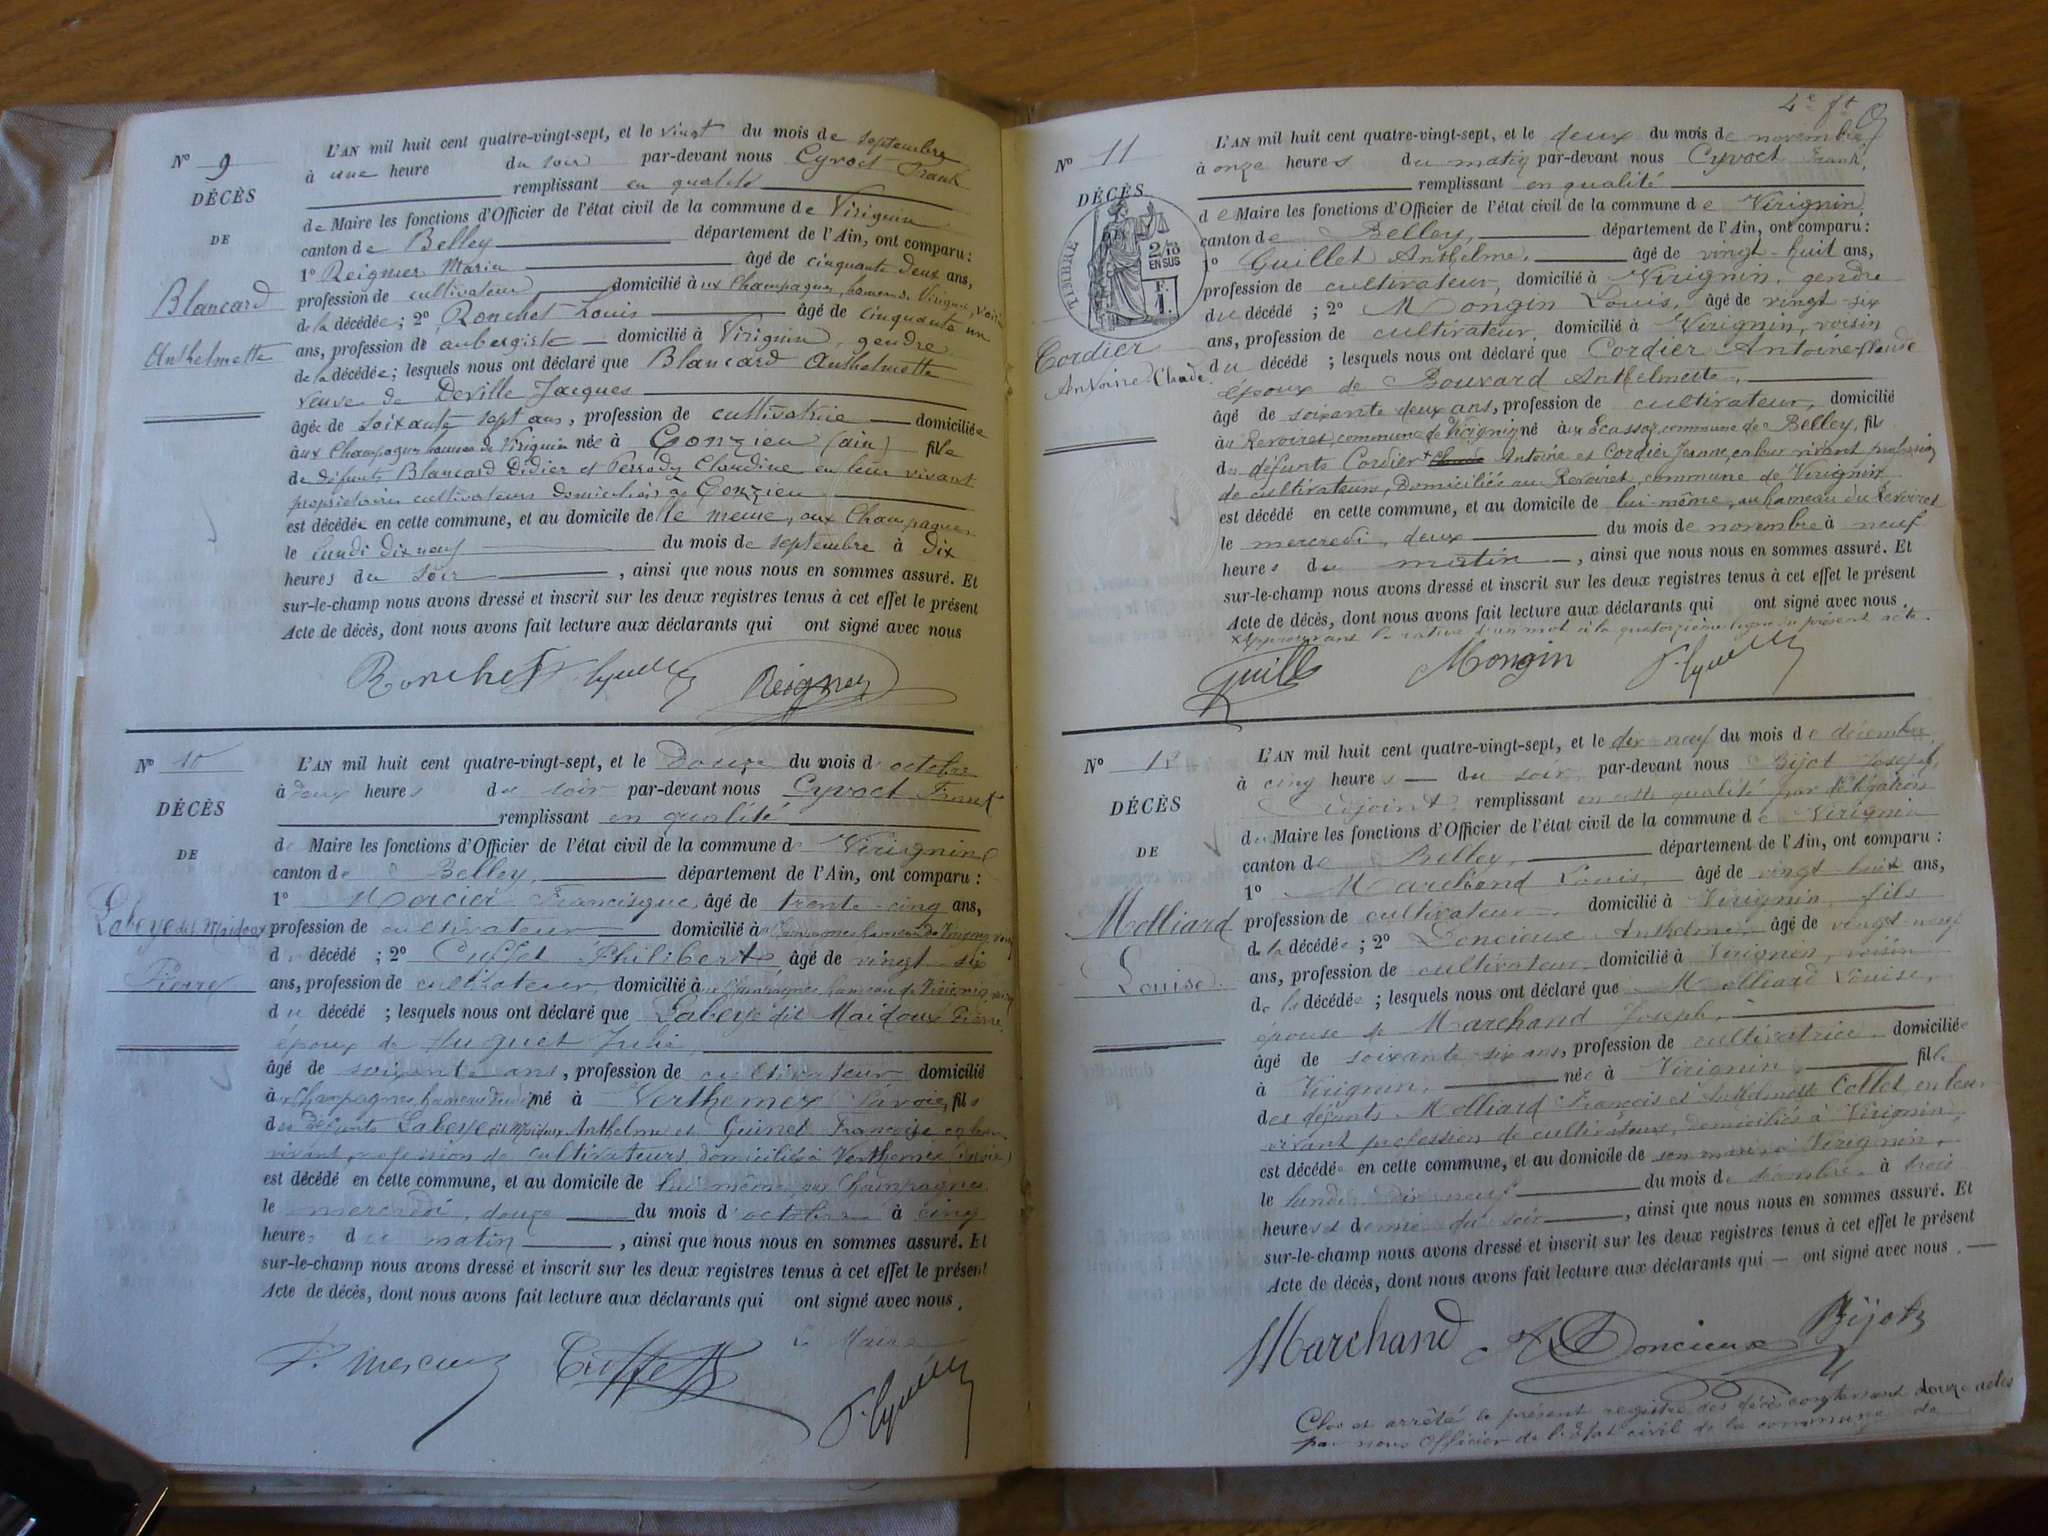 N° 9
DÉCÈS
DE
Blancard
Anthelmette
L'AN mil huit cent quatre-vingt-sept, et le vingt du mois de septembre
à une heure du soir par-devant nous Cyvoct Frank
remplissant en qualité
de Maire les fonctions d'Officier de l'état civil de la commune de Virignin
canton de Belley département de l'Ain, ont comparu :
1° Reignier Marin âgé de cinquante deux ans,
profession de cultivateur domicilié aux Champagnes, hameau de Virignin, voisin
de la décédée ; 2° Ronchet Louis âgé de cinquante un
ans, profession de aubergiste domicilié à Virignin, gendre
de la décédée ; lesquels nous ont déclaré que Blancard Anthelmette
veuve de Deville Jacques
âgée de soixante sept ans, profession de cultivatrice domiciliée
aux Champagnes hameau de Virignin née à Conzieu (ain) fille
de défunts Blancard Didier et Perrody Claudine en leur vivant
propriétaires cultivateurs domiciliés à Conzieu
est décédée en cette commune, et au domicile de le même, aux Champagnes
le lundi dix neuf du mois de septembre à dix
heures du soir , ainsi que nous nous en sommes assuré. Et
sur-le-champ nous avons dressé et inscrit sur les deux registres tenus à cet effet le présent
Acte de décès, dont nous avons fait lecture aux déclarants qui ont signé avec nous
Ronchet F. Cyvoct Reignier
N° 10
DÉCÈS
DE
Labeye dit Maidoux
Pierre
L'AN mil huit cent quatre-vingt-sept, et le Douze du mois d'octobre
à deux heures du soir par-devant nous Cyvoct Frank
remplissant en qualité
de Maire les fonctions d'Officier de l'état civil de la commune de Virignin
canton de Belley, département de l'Ain, ont comparu :
1° Mercier Francisque, âgé de trente-cinq ans,
profession de cultivateur domicilié aux Champagnes hameau de Virignin, voisin
du décédé ; 2° Cuffet Philibert, âgé de vingt six
ans, profession de cultivateur, domicilié aux Champagnes hameau de Virignin, voisin
du décédé ; lesquels nous ont déclaré que Labeye dit Maidoux Pierre,
époux de Huguet Julie,
âgé de soixante ans, profession de cultivateur domicilié
aux Champagnes, hameau né à Verthemex Savoie, fils
des défunts Labeye dit Maidoux Anthelme et Guinet Françoise, en leur
vivant profession de cultivateurs, domiciliés à Verthemex (Savoie)
est décédé en cette commune, et au domicile de lui-même, aux Champagnes
le mercredi, douze du mois d'octobre à cinq
heures du matin , ainsi que nous nous en sommes assuré. Et
sur-le-champ nous avons dressé et inscrit sur les deux registres tenus à cet effet le présent
Acte de décès, dont nous avons fait lecture aux déclarants qui ont signé avec nous.
Le Maire
F. Mercier Cuffet F. Cyvoct
4e ft
N° 11
DÉCÈS
TIMBRE
2/10
EN SUS
F.
1
Cordier
Antoine-Claude
L'AN mil huit cent quatre-vingt-sept, et le deux du mois de novembre
à onze heures du matin par-devant nous Cyvoct Frank,
remplissant en qualité
de Maire les fonctions d'Officier de l'état civil de la commune de Virignin,
canton de Belley, département de l'Ain, ont comparu :
1° Guillet Anthelme, âgé de vingt-huit ans,
profession de cultivateur, domicilié à Virignin, gendre
du décédé ; 2° Mongin Louis, âgé de vingt-six
ans, profession de cultivateur, domicilié à Virignin, voisin
du décédé ; lesquels nous ont déclaré que Cordier Antoine-Claude
époux de Bouvard Anthelmette,
âgé de soixante deux ans, profession de cultivateur, domicilié
au Revoiret, commune de Virignin né aux Ecassaz, commune de Belley, fils
des défunts Cordier + Claude Antoine et Cordier Jeanne, en leur vivant profession
de cultivateurs, domiciliés au Revoiret, commune de Virignin
est décédé en cette commune, et au domicile de lui-même, au hameau du Revoiret
le mercredi, deux du mois de novembre à neuf
heures du matin , ainsi que nous nous en sommes assuré. Et
sur-le-champ nous avons dressé et inscrit sur les deux registres tenus à cet effet le présent
Acte de décès, dont nous avons fait lecture aux déclarants qui ont signé avec nous.
x Approuvant la rature d'un mot à la quatorzième ligne du présent acte.
Guillet Mongin F. Cyvoct
N° 12
DÉCÈS
DE
Molliard
Louise
L'AN mil huit cent quatre-vingt-sept, et le dix neuf du mois de décembre,
à cinq heures du soir par-devant nous Bijot Joseph,
adjoint remplissant en cette qualité par délégation
du Maire les fonctions d'Officier de l'état civil de la commune de Virignin
canton de Belley, département de l'Ain, ont comparu :
1° Marchand Louis, âgé de vingt-huit ans,
profession de cultivateur, domicilié à Virignin, fils
de la décédée ; 2° Doncieux Anthelme, âgé de vingt neuf
ans, profession de cultivateur domicilié à Virignin, voisin
de la décédée ; lesquels nous ont déclaré que Molliard Louise,
épouse de Marchand Joseph,
âgé de soixante-six ans, profession de cultivatrice, domiciliée
à Virignin, née à Virignin, fille
des défunts Molliard François et Anthelmette Collet, en leur
vivant profession de cultivateurs, domiciliés à Virignin,
est décédée en cette commune, et au domicile de son mari, à Virignin,
le lundi dix neuf du mois de décembre à trois
heures et demie du soir , ainsi que nous nous en sommes assuré. Et
sur-le-champ nous avons dressé et inscrit sur les deux registres tenus à cet effet le présent
Acte de décès, dont nous avons fait lecture aux déclarants qui — ont signé avec nous.
Marchand A Doncieux Bijot
Clos et arrêté le présent registre des décès contenant douze actes
par nous Officier de l'état civil de la commune de